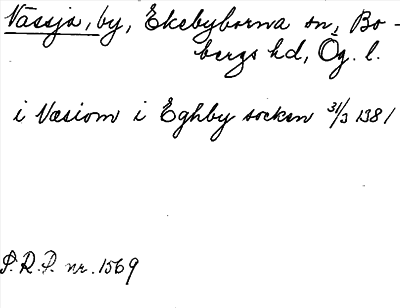 Vässja, by, Ekebyborna sn, Bo-
bergs hd, Ög. l.
i Væsiom i Eghby socken 31/3 1381
P.R.P. nr. 1569